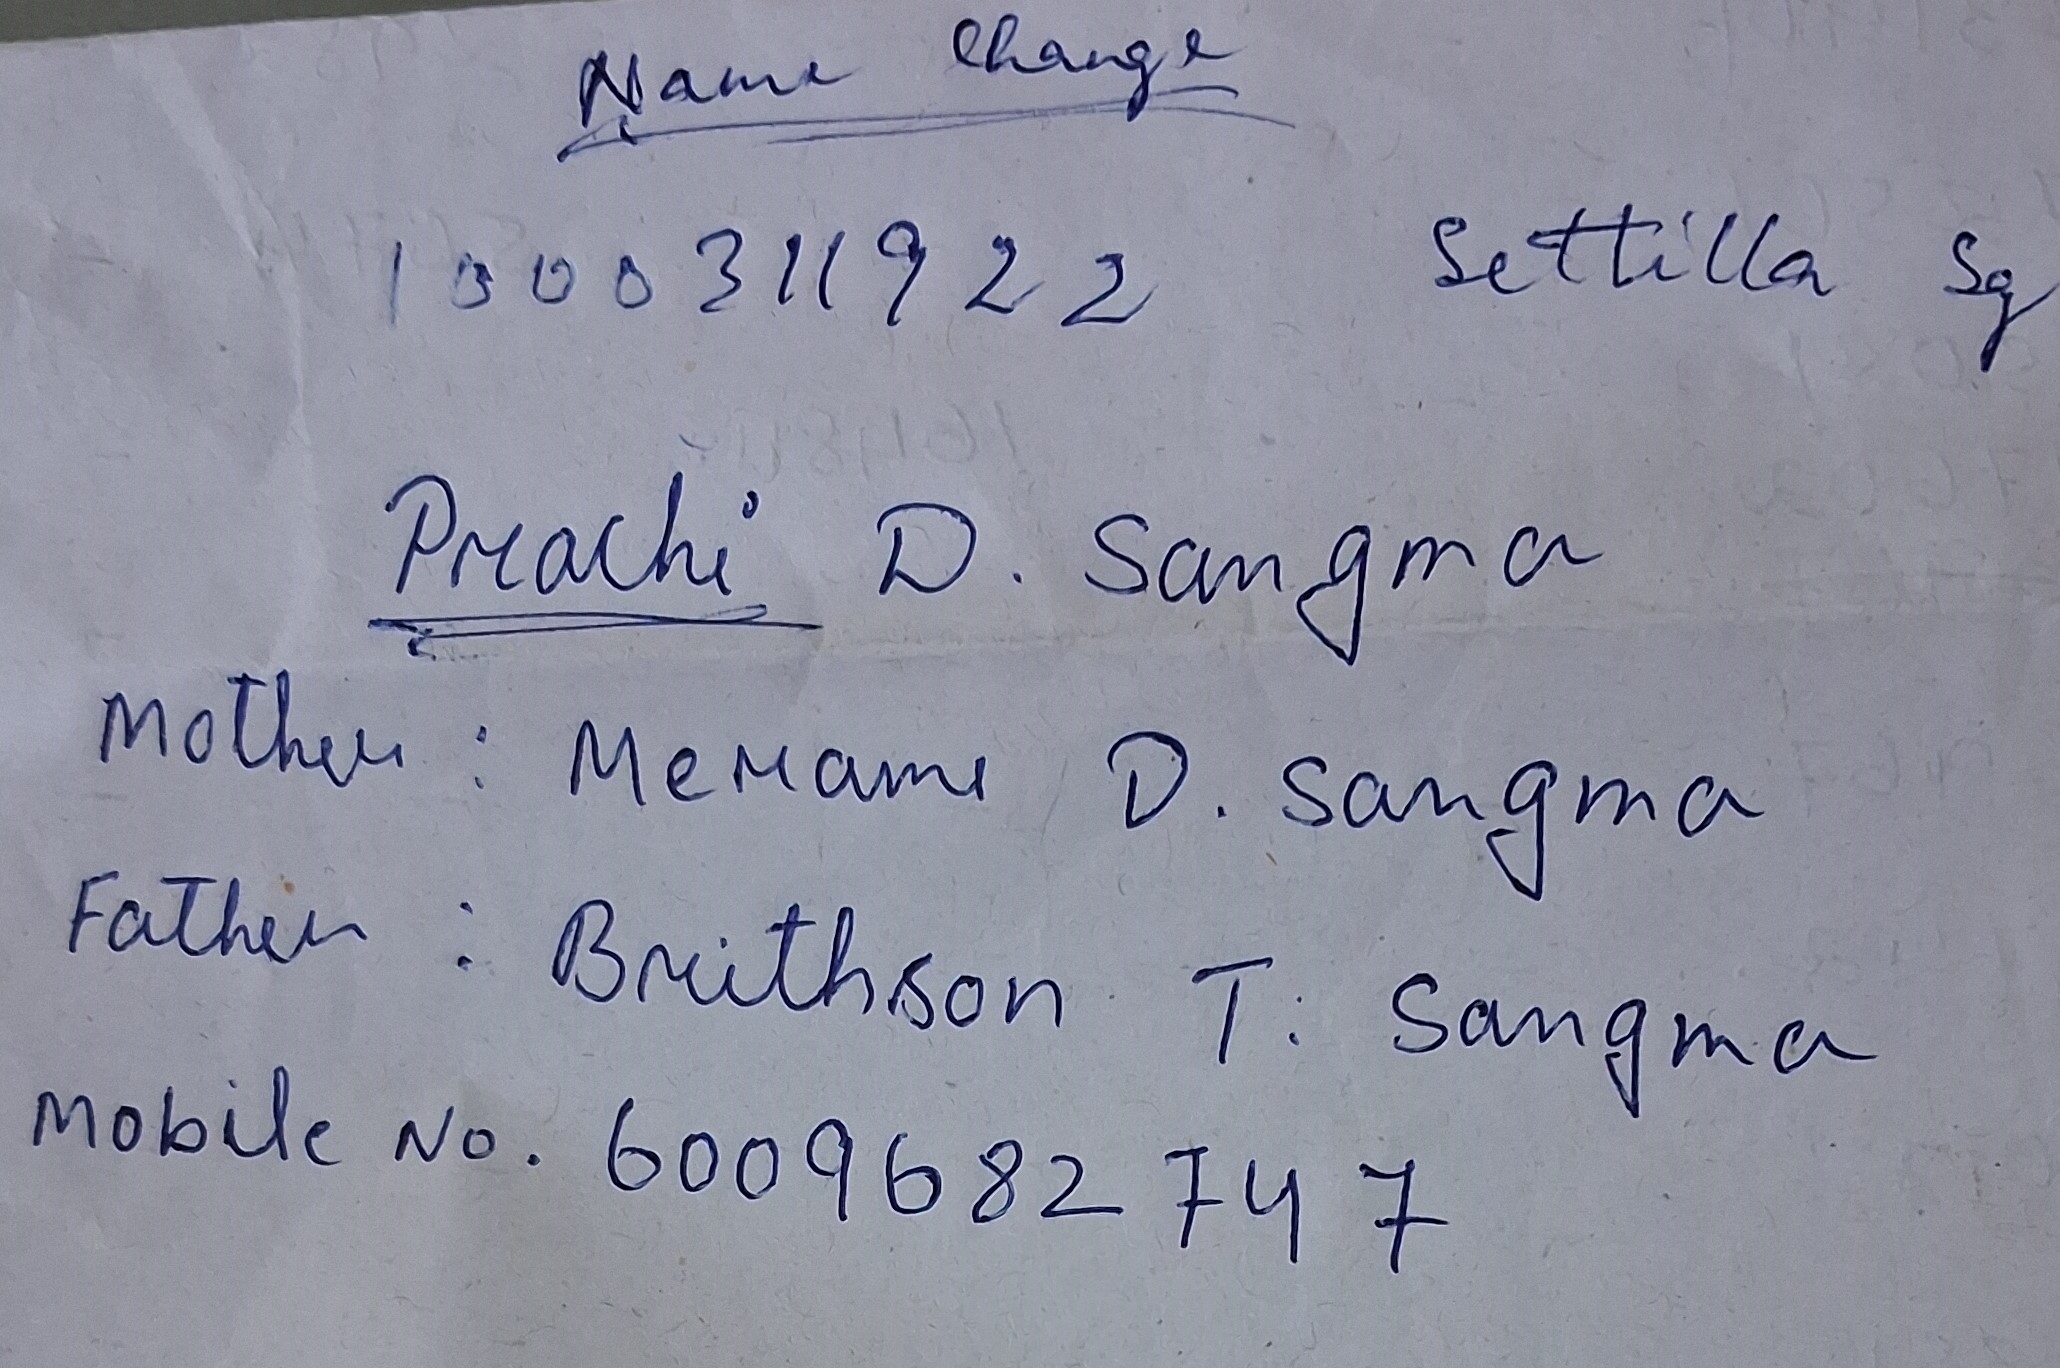 Name Change
1000311922 Settilla Sg
Prachi D. Sangma
Mother : Merame D. Sangma
Father : Brithson T. Sangma
Mobile No. 6009682747